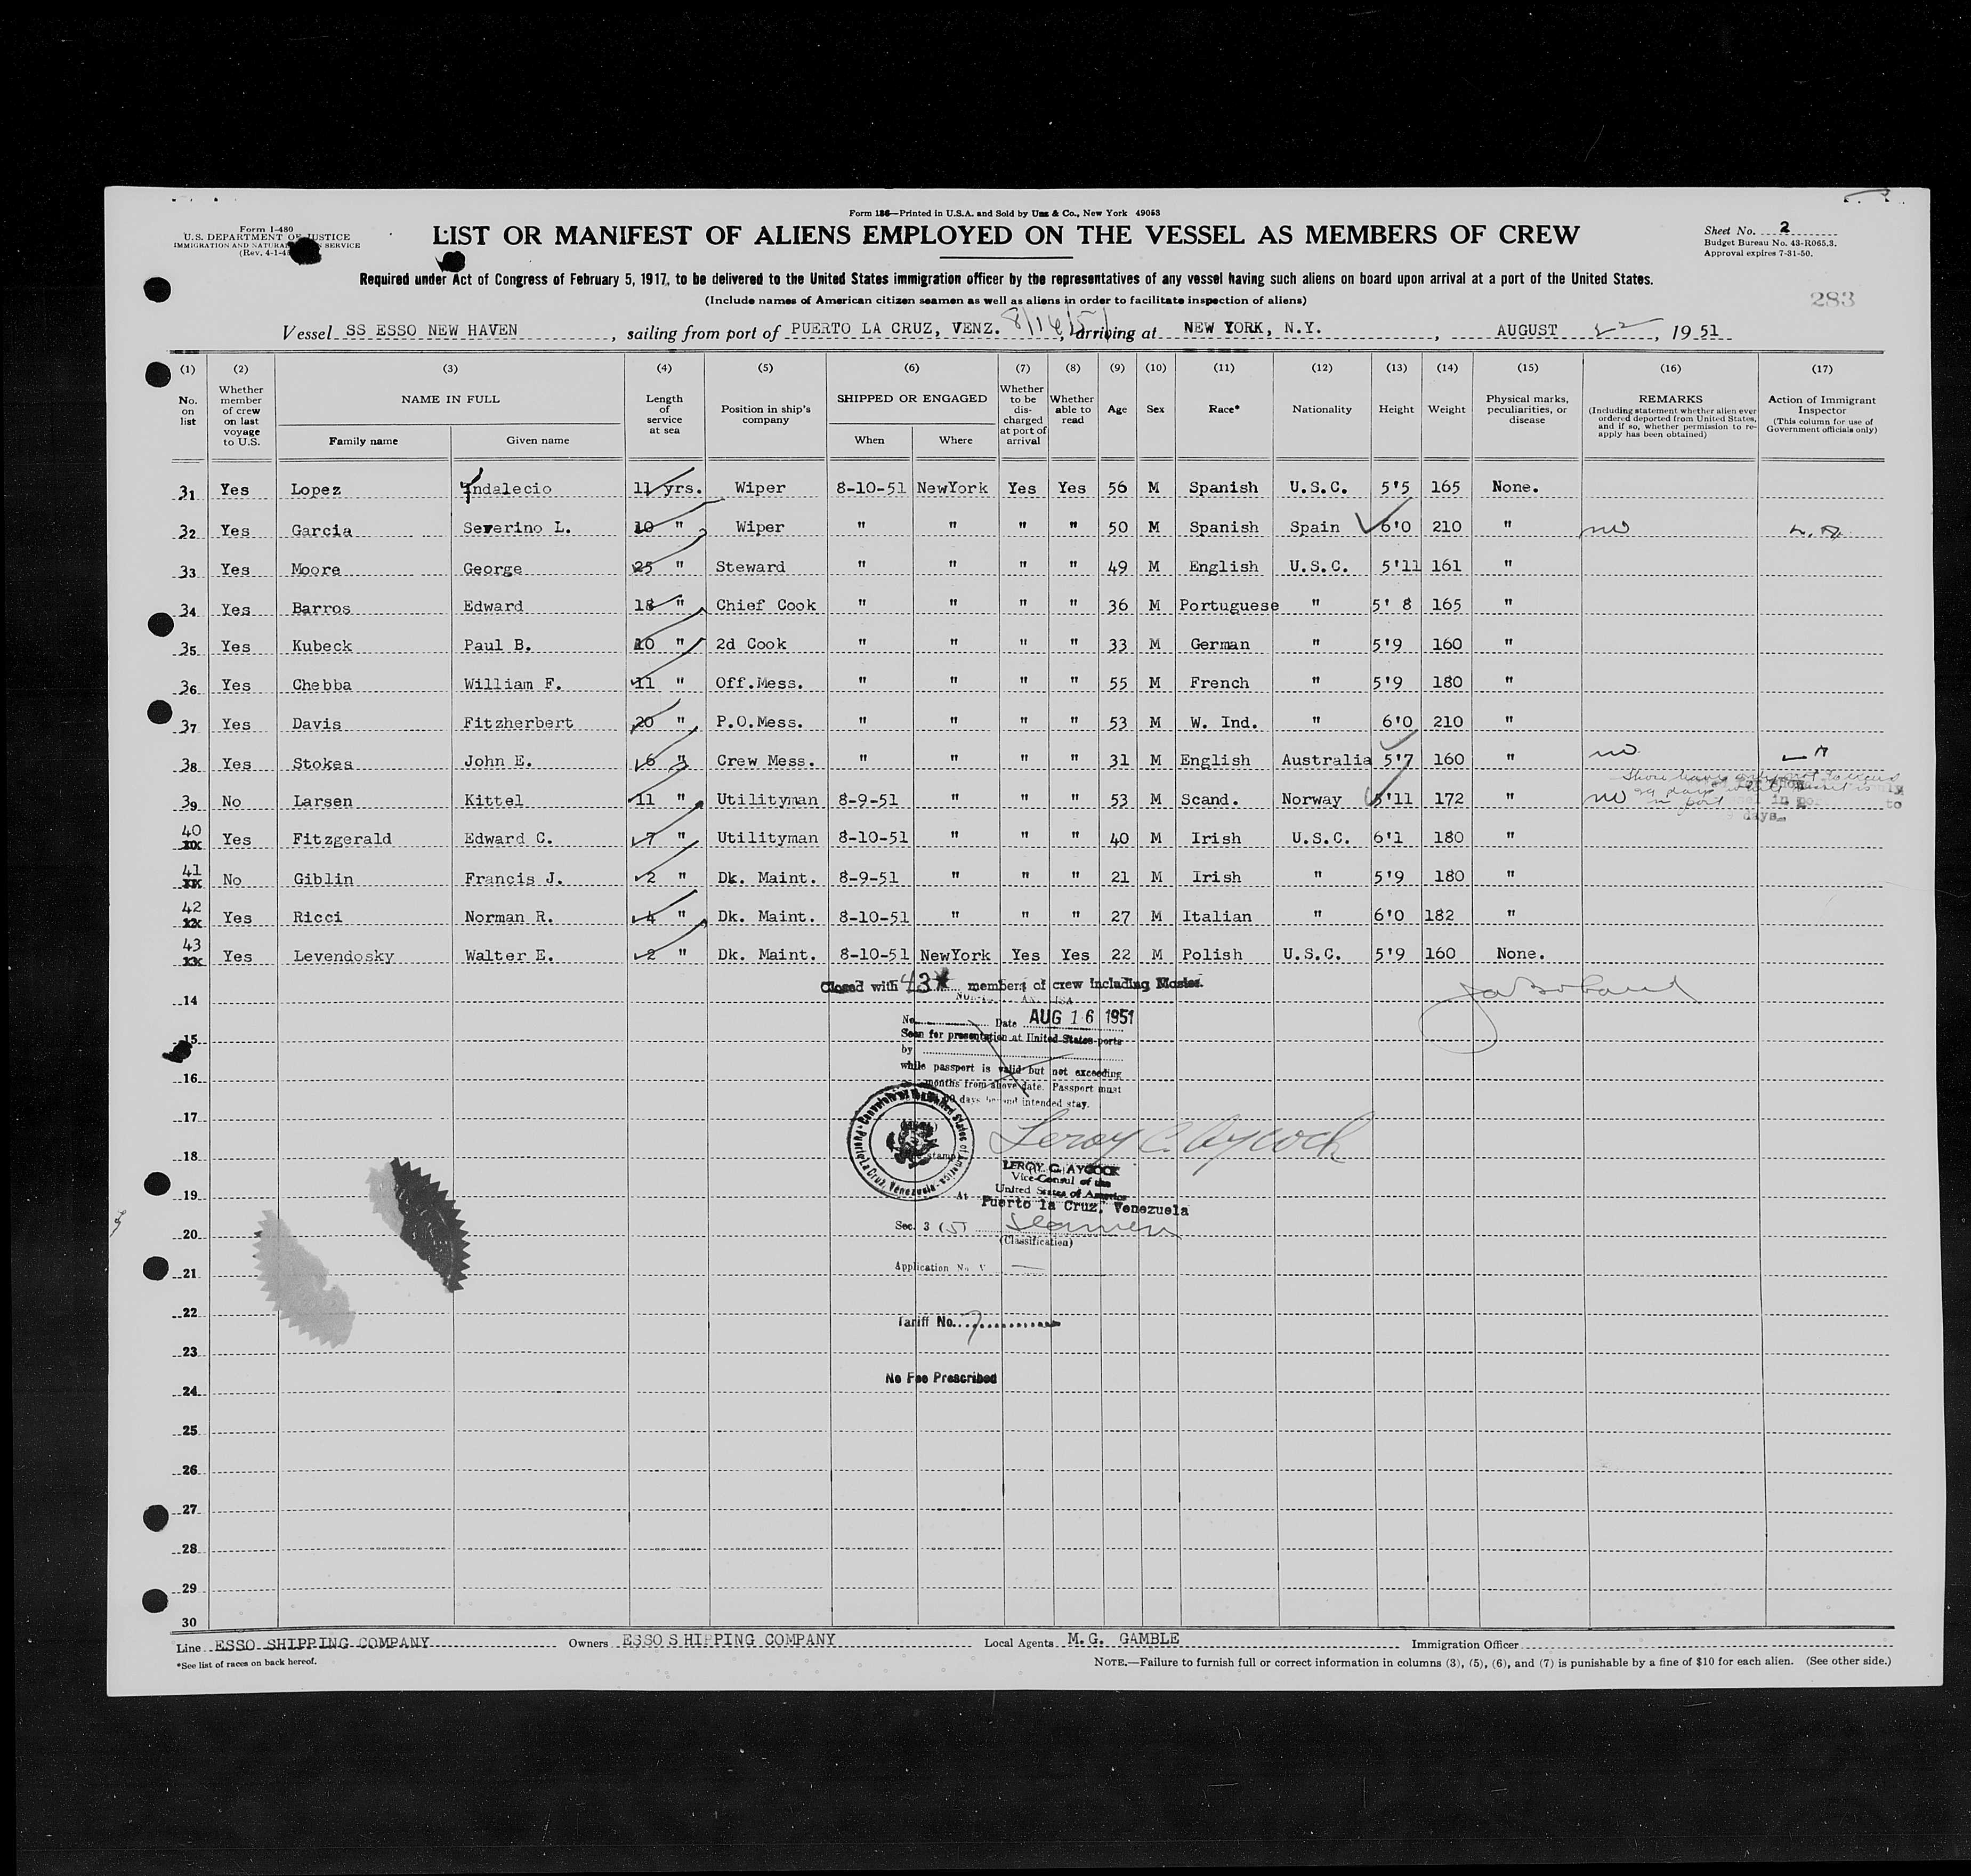 Form 136—Printed in U.S.A. and Sold by Unz & Co., New York 49053
Form I-480
U.S. DEPARTMENT OF JUSTICE
IMMIGRATION AND NATURALIZATION SERVICE
(Rev. 4-1-4
LIST OR MANIFEST OF ALIENS EMPLOYED ON THE VESSEL AS MEMBERS OF CREW
Sheet No. 2
Budget Bureau No. 43-R065.3.
Approval expires 7-31-50.
Required under Act of Congress of February 5, 1917, to be delivered to the United States immigration officer by the representatives of any vessel having such aliens on board upon arrival at a port of the United States.
(Include names of American citizen seamen as well as aliens in order to facilitate inspection of aliens)
283
Vessel SS ESSO NEW HAVEN, sailing from port of PUERTO LA CRUZ, VENZ. 8/16/51, arriving at NEW YORK, N.Y., AUGUST 22, 1951
(1) (2) (3) (4) (5) (6) (7) (8) (9) (10) (11) (12) (13) (14) (15) (16) (17)
No. on list
Whether member of crew on last voyage to U.S.
NAME IN FULL
Family name
Given name
Length of service at sea
Position in ship's company
SHIPPED OR ENGAGED
When
Where
Whether to be discharged at port of arrival
Whether able to read
Age
Sex
Race*
Nationality
Height
Weight
Physical marks, peculiarities, or disease
REMARKS
(Including statement whether alien ever ordered deported from United States, and if so, whether permission to re-apply has been obtained)
Action of Immigrant Inspector
(This column for use of Government officials only)
31 Yes Lopez Indalecio 11 yrs. Wiper 8-10-51 NewYork Yes Yes 56 M Spanish U.S.C. 5'5 165 None.
32 Yes Garcia Severino L. 10 " Wiper " " " " 50 M Spanish Spain 6'0 210 " no
33 Yes Moore George 25 " Steward " " " " 49 M English U.S.C. 5'11 161 "
34 Yes Barros Edward 18 " Chief Cook " " " " 36 M Portuguese " 5' 8 165 "
35 Yes Kubeck Paul B. 10 " 2d Cook " " " " 33 M German " 5'9 160 "
36 Yes Chebba William F. 11 " Off.Mess. " " " " 55 M French " 5'9 180 "
37 Yes Davis Fitzherbert 20 " P.O.Mess. " " " " 53 M W. Ind. " 6'0 210 "
38 Yes Stokes John E. 6 " Crew Mess. " " " " 31 M English Australia 5'7 160 " no
39 No Larsen Kittel 11 " Utilityman 8-9-51 " " " 53 M Scand. Norway 5'11 172 " no
40 Yes Fitzgerald Edward C. 7 " Utilityman 8-10-51 " " " 40 M Irish U.S.C. 6'1 180 "
41 No Giblin Francis J. 2 " Dk. Maint. 8-9-51 " " " 21 M Irish " 5'9 180 "
42 Yes Ricci Norman R. 4 " Dk. Maint. 8-10-51 " " " 27 M Italian " 6'0 182 "
43 Yes Levendosky Walter E. 2 " Dk. Maint. 8-10-51 NewYork Yes Yes 22 M Polish U.S.C. 5'9 160 None.
Closed with 43 members of crew including Master.
14
No. Date AUG 16 1951
Seen for presentation at United States ports
15
by
while passport is valid but not exceeding
16
months from above date. Passport must
days beyond intended stay.
17
Consulate of the United States of America
Puerto La Cruz, Venezuela
Leroy C. Aycock
18
LEROY C. AYCOCK
Vice-Consul of the
United States of America
19
At Puerto la Cruz, Venezuela
Sec. 3 (5) Seamen
20
(Classification)
Application No. V
21
22
Tariff No. 7
23
No Fee Prescribed
24
25
26
27
28
29
30
Line ESSO SHIPPING COMPANY Owners ESSO SHIPPING COMPANY Local Agents M.G. GAMBLE Immigration Officer
*See list of races on back hereof.
NOTE.—Failure to furnish full or correct information in columns (3), (5), (6), and (7) is punishable by a fine of $10 for each alien. (See other side.)